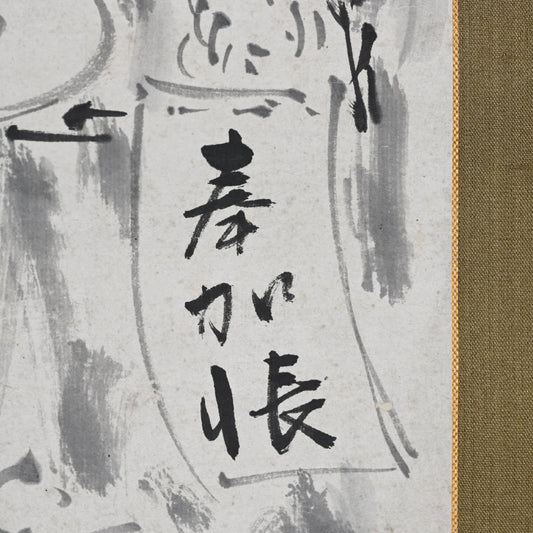 奉加帳